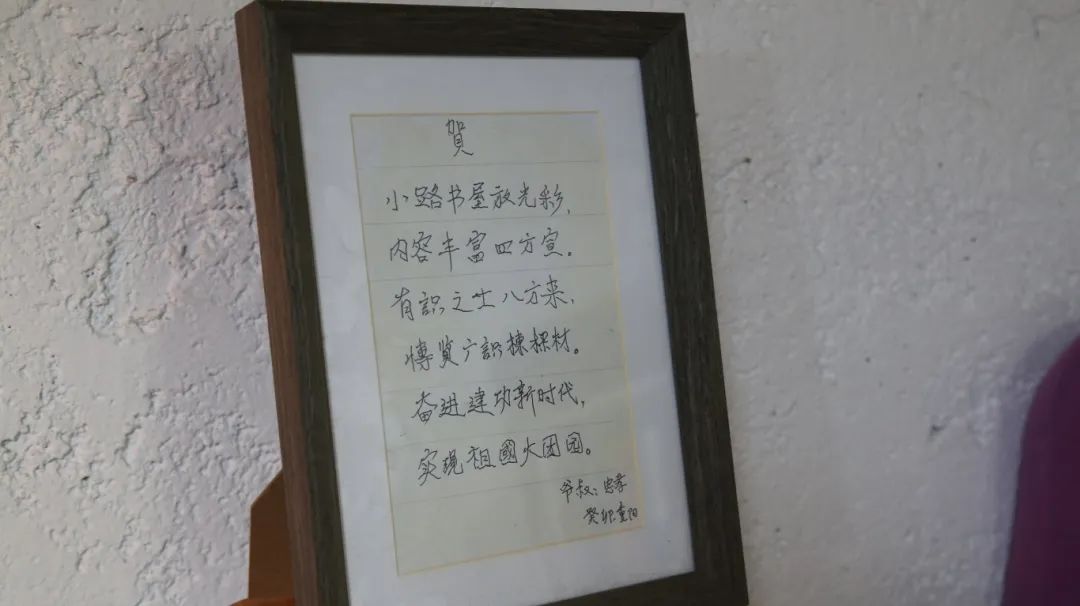 賀
小路书屋放光彩，
内容丰富四方宣。
有識之士八方来，
博览广識棟樑材。
奋进建功新时代，
实現祖國大团园。
爷叔：忠孝
癸卯重阳